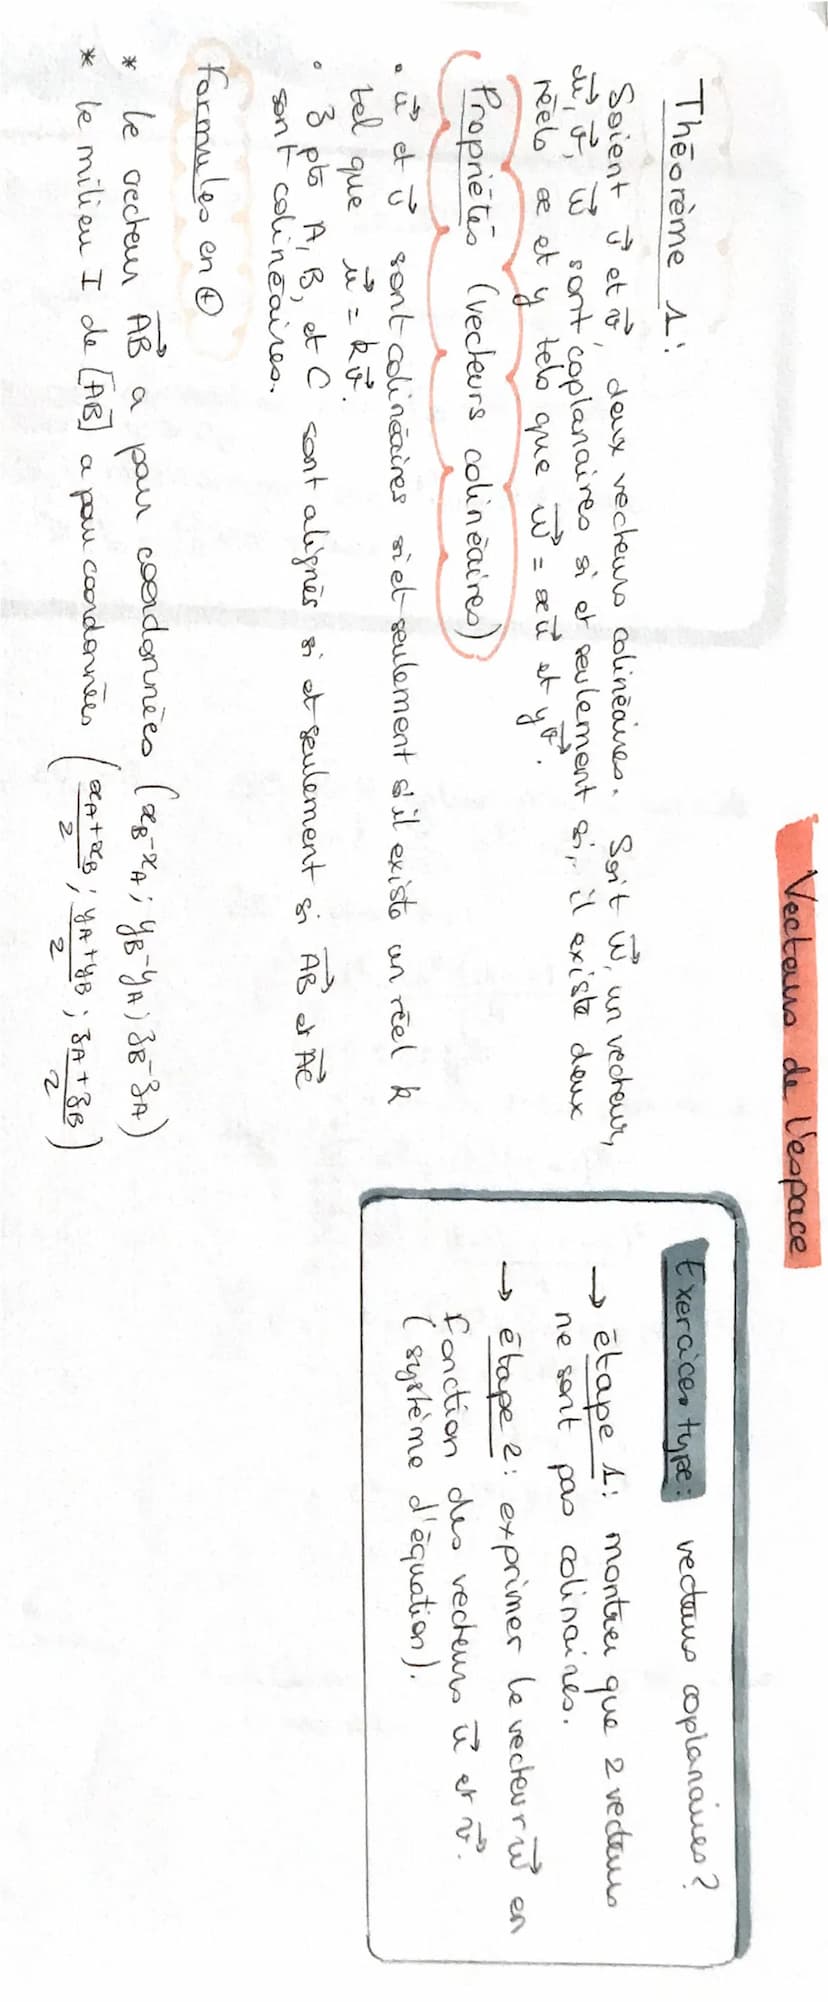 Vecteurs de l'espace
Théorème 1:
Soient u⃗ et v⃗, deux vecteurs colinéaires. Soit w⃗, un vecteur,
u⃗, v⃗, w⃗ sont coplanaires si et seulement si, il existe deux
réels x et y tels que w⃗ = xu⃗ et yv⃗.
Propriétés (vecteurs colinéaires)
• u⃗ et v⃗ sont colinéaires si et seulement s'il existe un réel k
tel que u⃗ = kv⃗.
• 3 pts A, B, et C sont alignés si et seulement si AB⃗ et AC⃗
sont colinéaires.
Formules en ⊕
* le vecteur AB⃗ a pour coordonnées (xB-xA; yB-yA; zB-zA)
* le milieu I de [AB] a pour coordonnées ((xA+xB)/2; (yA+yB)/2; (zA+zB)/2)
Exercices type: vecteurs coplanaires?
→ étape 1: montrer que 2 vecteurs
ne sont pas colinaires.
→ étape 2: exprimer le vecteur w⃗ en
fonction des vecteurs u⃗ et v⃗.
(système d'équation).